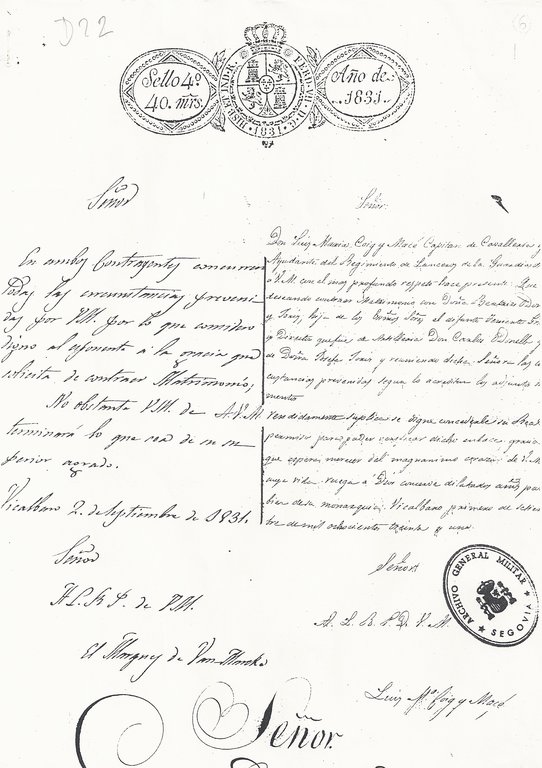 D22
(6)
Sello 4º
40. mrs.
HISP. ET IND. R. FERD. VII. D. G.
1831
Año de
1831.
Señor
Señor.
Don Luis Maria Coig y Macé Capitan de Cavalleria y
Ayudante del Regimiento de Lanceros de la Guardia
á V.M. con el mas profundo respeto hace presente: Que
deseando contraer Matrimonio con Doña
y hija de los el difunto Teniente
y Director que fue de Artilleria Don Carlos
de Doña Josefa y reuniendo dicha Señora las
cunstancias prevenidas segun lo acreditan los adjuntos
mentos
A.V.M. rendidamente suplica se digne concederle su Real
permiso para poder verificar dicho enlace, gracia
que espera merecer del magnanimo corazon de V.M.
cuya vida ruega á Dios conserve dilatados años para
bien de la monarquia. Vicalbaro, primero de setiem
bre de mil ochocientos treinta y uno.
En ambos Contrayentes concurren
todas las circunstancias preveni
das por V.M. por lo que considero
digno al esponente á la gracia que
solicita de contraer Matrimonio;
No obstante V.M. de
terminará lo que sea de su su
perior agrado.
Vicalbaro 2. de Septiembre de 1831.
Señor
A L. R. P. de V.M.
El Marques de
Señor
A. L. R. P. D. V. M.
Luis Mª Coig y Macé
ARCHIVO GENERAL MILITAR
SEGOVIA
Señor.